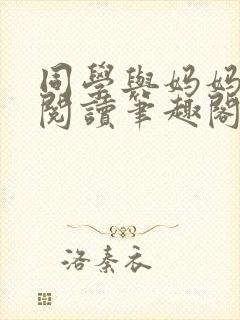 同學與媽媽
閱讀筆趣閣
洛秦衣